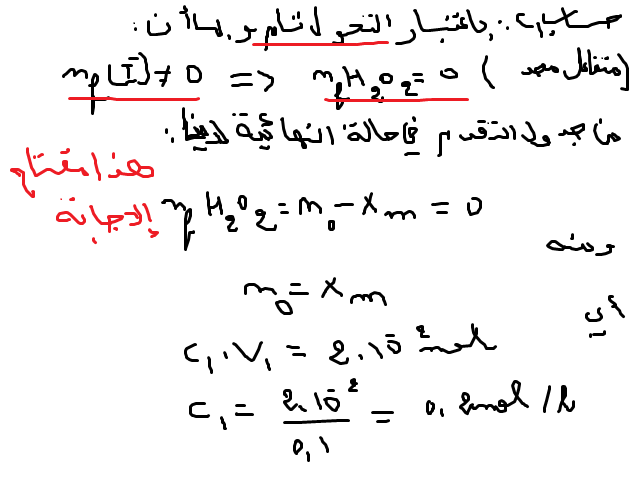 حساب C₁: باعتبار التحول تام و بما أن:
nf(I⁻) ≠ 0 <=> nf H₂O₂ = 0 (متفاعل محد
من جدول التقدم في حالة النهائية لدينا:
هذا مفتاح
الإجابة
nf H₂O₂ = n₀ - Xm = 0
ومنه
n₀ = Xm
أي
C₁.V₁ = 2.10⁻² mol
C₁ = 2.10⁻² / 0,1 = 0,2 mol/l